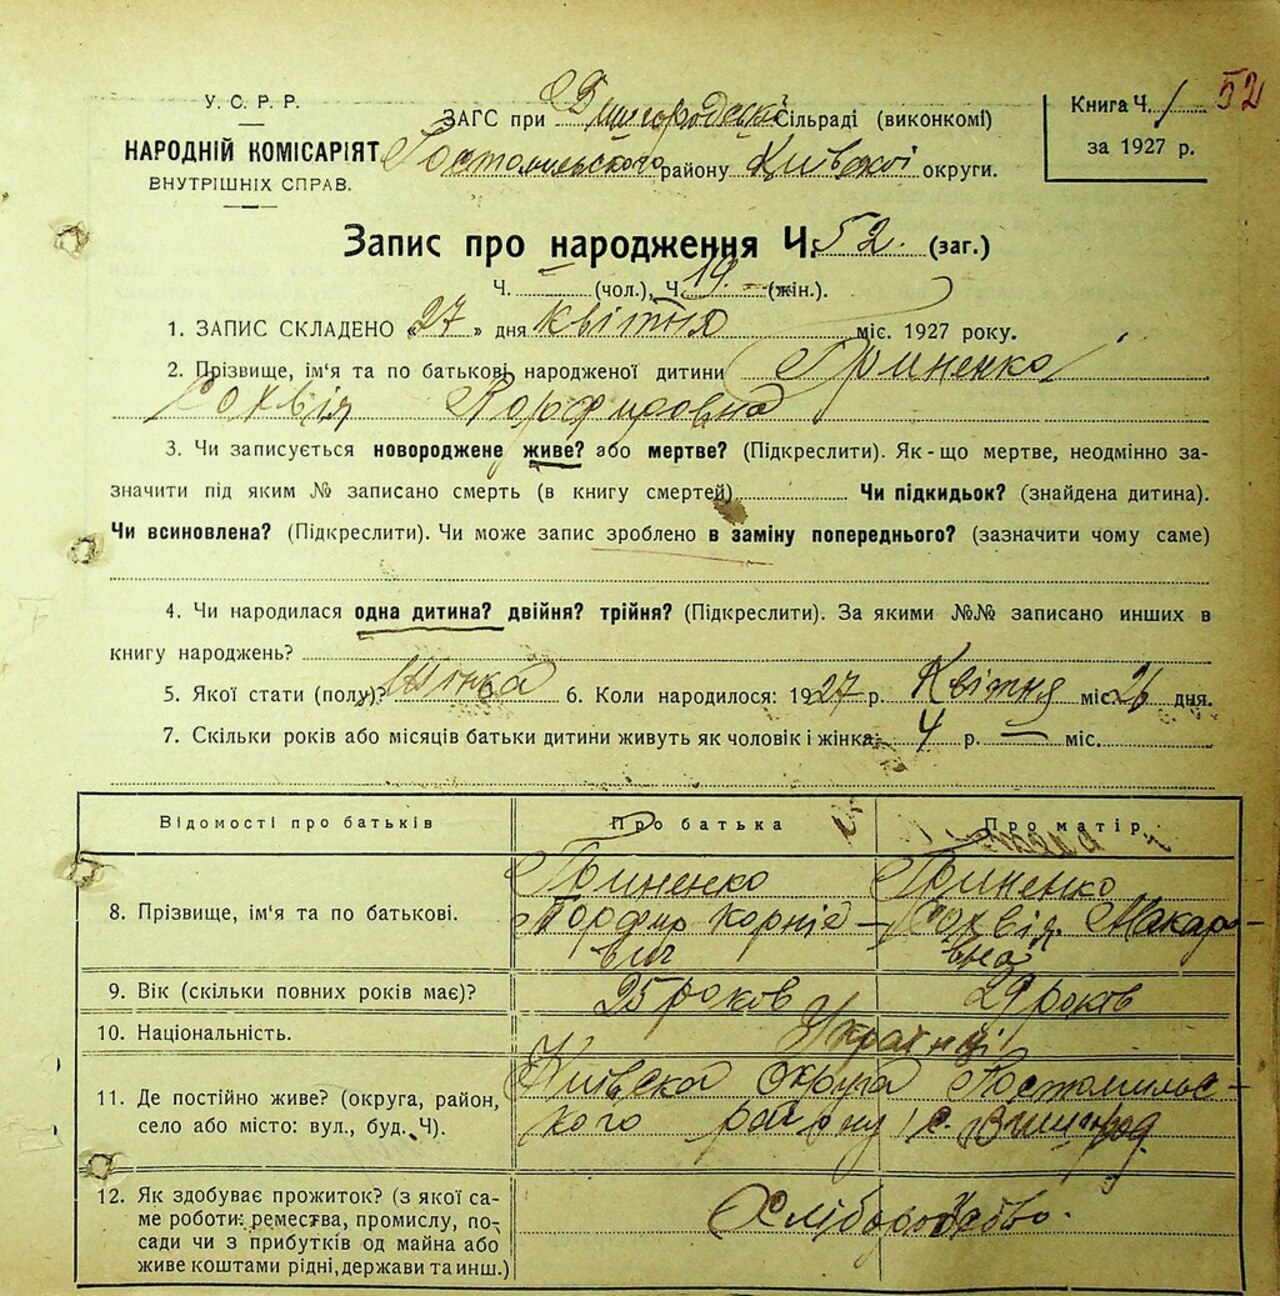 52
У. С. Р. Р.
НАРОДНІЙ КОМІСАРІЯТ
ВНУТРІШНІХ СПРАВ.
ЗАГС при Вишгородській Сільраді (виконкомі)
Гостомильського району Київської округи.
Книга Ч. 1
за 1927 р.
Запис про народження Ч. 52. (заг.)
Ч. — (чол.), Ч. 19. — (жін.).
1. ЗАПИС СКЛАДЕНО «27» дня квітня міс. 1927 року.
2. Прізвище, ім'я та по батькові народженої дитини Гриненко
Сохвія Порфировна
3. Чи записується новороджене живе? або мертве? (Підкреслити). Як-що мертве, неодмінно за-
значити під яким № записано смерть (в книгу смертей) Чи підкидьок? (знайдена дитина).
Чи всиновлена? (Підкреслити). Чи може запис зроблено в заміну попереднього? (зазначити чому саме)
4. Чи народилася одна дитина? двійня? трійня? (Підкреслити). За якими №№ записано инших в
книгу народжень?
5. Якої стати (полу)? Жінка 6. Коли народилося: 1927 р. Квітня міс. 26 дня.
7. Скільки років або місяців батьки дитини живуть як чоловік і жінка 4 р. — міс.
Відомості про батьків
Про батька
Про матір
8. Прізвище, ім'я та по батькові.
Гриненко
Порфир Корніє-
вич
Гриненко
Сохвія Макаро-
вна
9. Вік (скільки повних років має)?
25 роков
29 роков
10. Національність.
Українці
11. Де постійно живе? (округа, район,
село або місто: вул., буд. Ч).
Київска округа Гостомильс-
кого району с. Вишгород
12. Як здобуває прожиток? (з якої са-
ме роботи: ремества, промислу, по-
сади чи з прибутків од майна або
живе коштами рідні, держави та инш.)
Хліборобство.